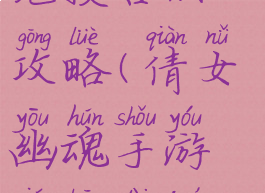 gōng lüè qiàn nǚ
攻略(倩女
yōu hún shǒu yóu
幽魂手游